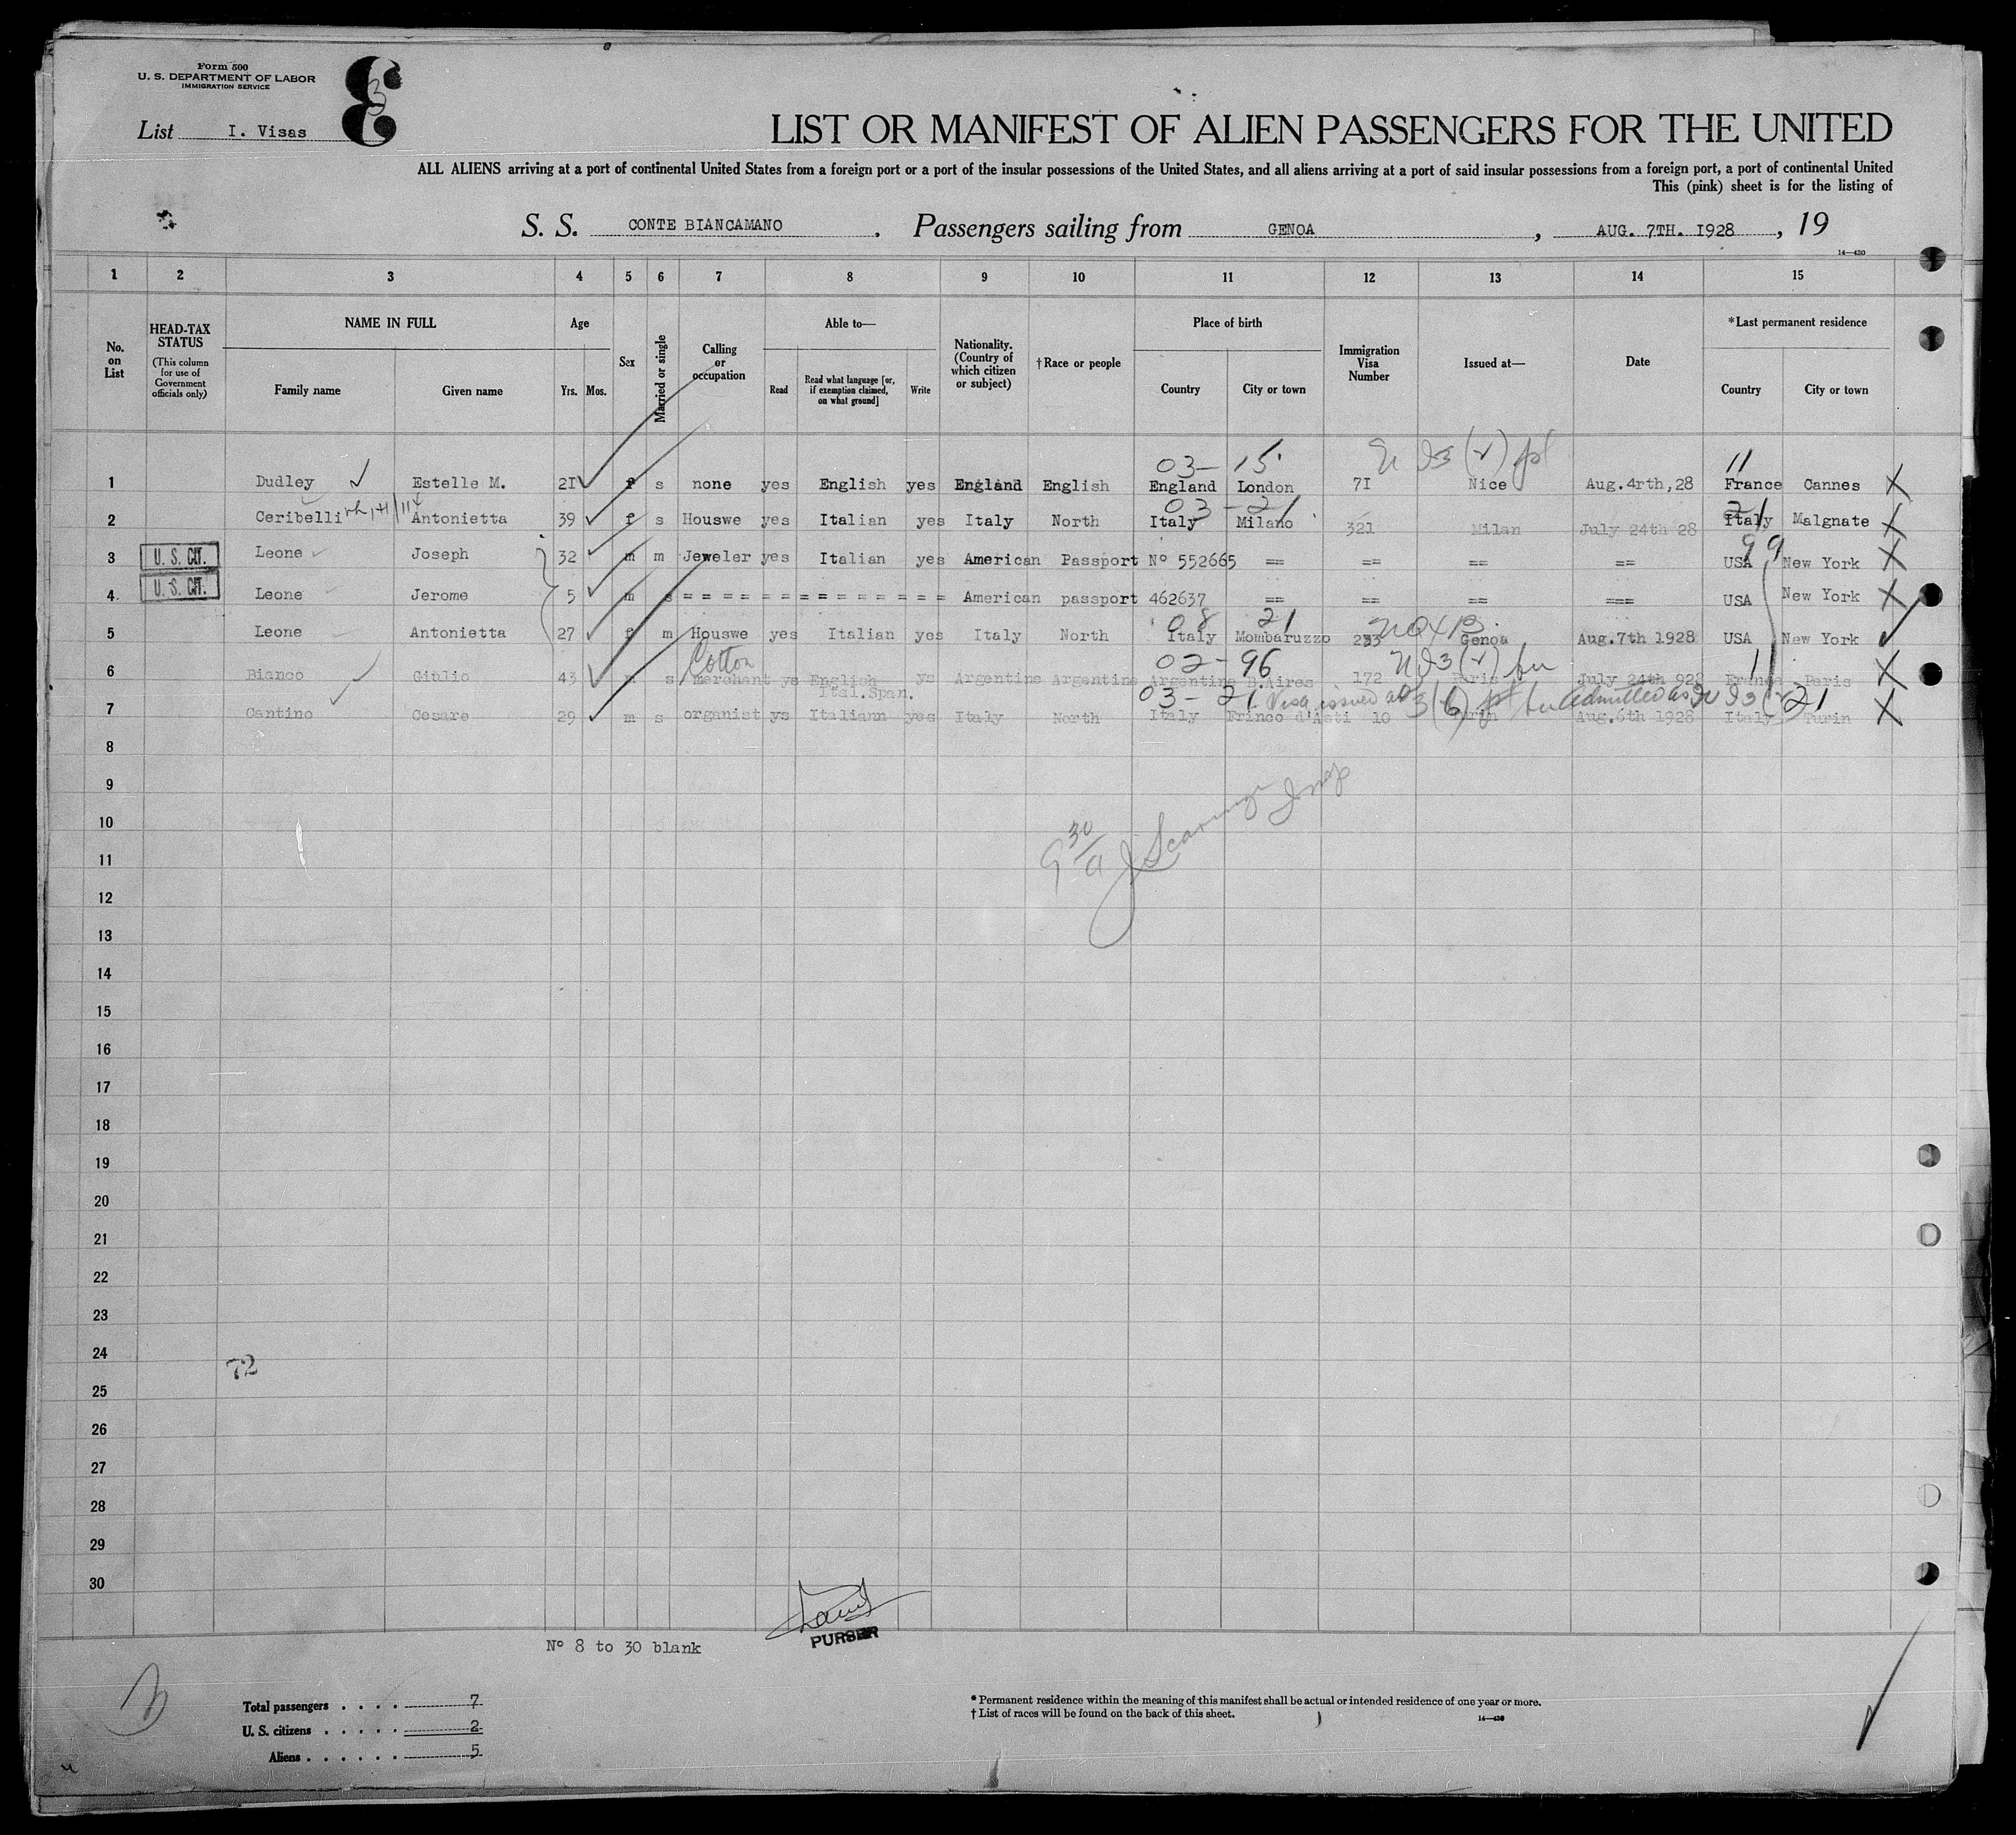 Form 500
U. S. DEPARTMENT OF LABOR
IMMIGRATION SERVICE
3
List I. Visas
LIST OR MANIFEST OF ALIEN PASSENGERS FOR THE UNITED
ALL ALIENS arriving at a port of continental United States from a foreign port or a port of the insular possessions of the United States, and all aliens arriving at a port of said insular possessions from a foreign port, a port of continental United
This (pink) sheet is for the listing of
S. S. CONTE BIANCAMANO . Passengers sailing from GENOA , AUG. 7TH. I928 , 19
14—430
1 2 3 4 5 6 7 8 9 10 11 12 13 14 15
No. on List
HEAD-TAX STATUS (This column for use of Government officials only)
NAME IN FULL Family name Given name
Age Yrs. Mos.
Sex
Married or single
Calling or occupation
Able to— Read Read what language [or, if exemption claimed, on what ground] Write
Nationality. (Country of which citizen or subject)
†Race or people
Place of birth Country City or town
Immigration Visa Number
Issued at—
Date
*Last permanent residence Country City or town
03— 15 11
1 Dudley Estelle M. 2I f s none yes English yes England English England London 7I Nice Aug.4rth,28 France Cannes X
03 - 21 21
2 Ceribelli Antonietta 39 f s Houswe yes Italian yes Italy North Italy Milano 321 Milan July 24th 28 Italy Malgnate X
99
3 U. S. CIT. Leone Joseph 32 m m Jeweler yes Italian yes American Passport Nº 552665 == == == == USA New York X
4 U. S. CIT. Leone Jerome 5 m s = = = = = = = = = = = = = = American passport 462637 == == == === USA New York X
08 21
5 Leone Antonietta 27 f m Houswe yes Italian yes Italy North Italy Mombaruzzo 233 Genoa Aug.7th 1928 USA New York
Cotton 02- 96 11
6 Bianco Giulio 43 m s merchant ys English Ital.Span. ys Argentine Argentine Argentine B.Aires 172 Paris July 24th 928 France Paris X
03 - 21. Visa issued as 3(6) admitted as 21
7 Cantino Cesare 29 m s organist ys Italiann yes Italy North Italy Frinco d'Asti 10 Turin Aug.6th 1928 Italy Turin X
8
9
10
11
9 30/a
12
13
14
15
16
17
18
19
20
21
22
23
24
72
25
26
27
28
29
30
Nº 8 to 30 blank
PURSER
Total passengers . . . . 7
U. S. citizens . . . . . 2
Aliens . . . . . . 5
* Permanent residence within the meaning of this manifest shall be actual or intended residence of one year or more.
† List of races will be found on the back of this sheet.
14—430